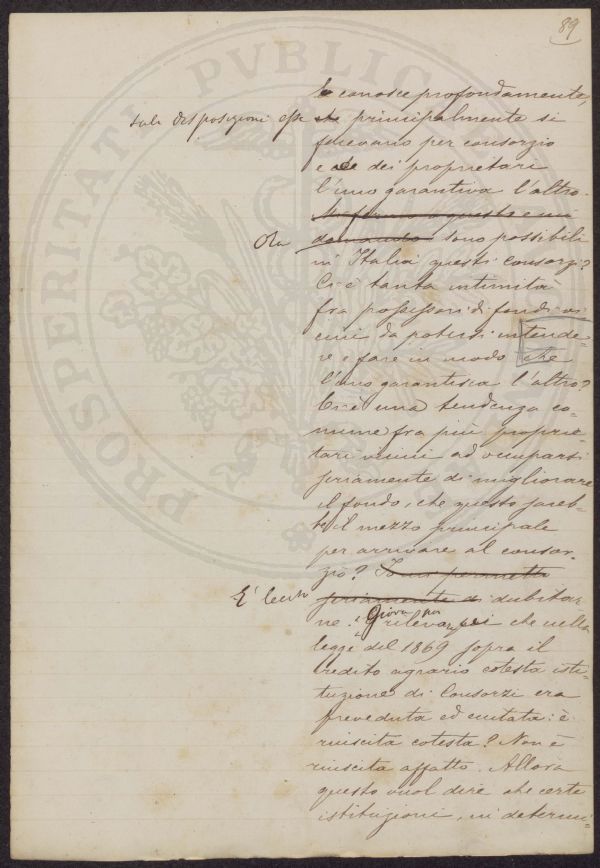 89
PROSPERITATI PVBLIC
la conosce profondamente,
tale disposizioni che principalmente si
facevano per consorzio
e dei proprietari
l'uno garantiva l'altro.
Mi fermo a questo e mi
Ora domando sono possibili
in Italia questi consorzi?
Ci è tanta intimità
fra possessori di fondi vi-
cini da potersi intende-
re e fare in modo che
l'uno garantisca l'altro?
Ci è una tendenza co-
mune fra più proprie-
tari vicini ad occuparsi
seriamente di migliorare
il fondo, che questo sareb-
be il mezzo principale
per arrivare al consor-
zio? Io mi permetto
È lecito seriamente di dubitar-
ne. Giova poi rilevare che nella
legge del 1869 sopra il
credito agrario cotesta isti-
tuzione di Consorzi era
preveduta ed era: è
riuscita cotesta? Non è
riuscita affatto. Allora
questo vuol dire che certe
istituzioni, in determi-